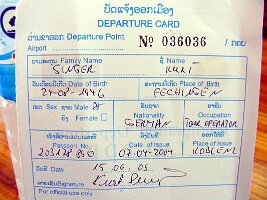 ບັດແຈ້ງອອກເມືອງ
DEPARTURE CARD
ດ່ານຂາອອກ Departure Point
Airport Nº 036036
ນາມສະກຸນ Family Name ຊື່ Name
SINGER KURT
ວັນເດືອນປີເກີດ Date of Birth ສະຖານທີ່ເກີດ Place of Birth
27-08-1946 FECHINGEN
ເພດ Sex ຊາຍ Male ສັນຊາດ ອາຊີບ
ຍິງ Female Nationality Occupation
GERMAN TOUR OPERATOR
Passport No. Date of Issue Place of Issue
07-04-2004 KOBLENZ
ວັນທີ Date 15.06.05
ລາຍເຊັນ Signature
For official use only